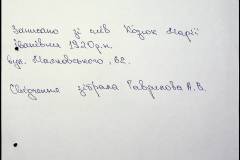 Записано зі слів Козюк Марії
Іванівни 1920р.н.
вул. Маяковського, 82.
Свідчення зібрала Гаврилова А.В.